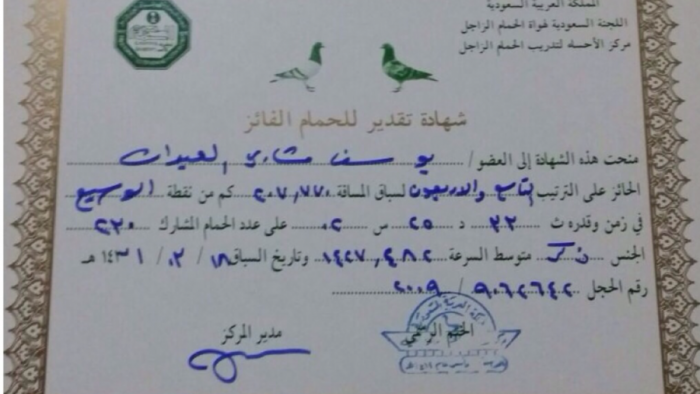 المملكة العربية السعودية
اللجنة السعودية لهواة الحمام الزاجل
مركز الأحساء لتدريب الحمام الزاجل
شهادة تقدير للحمام الفائز
منحت هذه الشهادة إلى العضو / يوسف مشاري العبيدان
الحائز على الترتيب التاسع والاربعون لسباق المسافة ٢٠٧,٧٧٠ كم من نقطة الوسيع
في زمن وقدره ث ٣٢ د ٢٥ س ٠٢ على عدد الحمام المشارك ٢٣٠
الجنس ذكر متوسط السرعة ١٤٢٧,٤٨٢ وتاريخ السباق ١٨ / ٠٢ / ١٤٣١ هـ
رقم الحجل ٩٠٦٢٦٤٢ / ٢٠٠٩
الختم الرسمي
مدير المركز